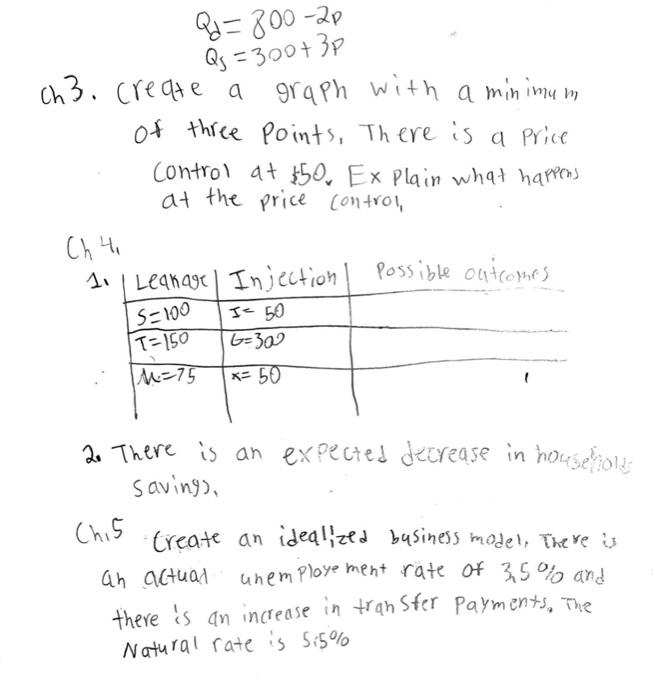 Qd = 800 - 2p
Qs = 300 + 3P
Ch3. Create a graph with a minimum
of three Points, There is a Price
Control at $50. Explain what happens
at the price control,
Ch 4,
1. | Leakage | Injection | Possible outcomes
S=100 | I= 50
T=150 | G=300
M=75 | x= 50
2. There is an expected decrease in households
savings,
Ch,5 Create an idealized business model, There is
an actual unemployement rate of 3,5% and
there is an increase in transfer payments, The
Natural rate is 5.5%